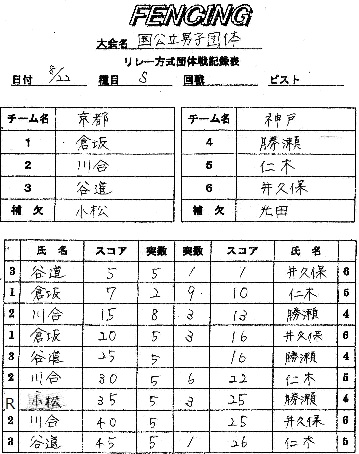 FENCING
大会名 国公立男子団体
リレー方式団体戦記録表
日付 8/22 種目 S 回戦 ピスト
チーム名 京都 チーム名 神戸
1 倉坂 4 勝瀬
2 川合 5 仁木
3 谷道 6 井久保
補欠 小松 補欠 光田
氏名 スコア 実数 実数 スコア 氏名
3 谷道 5 5 1 1 井久保 6
1 倉坂 7 2 9 10 仁木 5
2 川合 15 8 3 13 勝瀬 4
1 倉坂 20 5 3 16 井久保 6
3 谷道 25 5 16 勝瀬 4
2 川合 30 5 6 22 仁木 5
R 小松 35 5 3 25 勝瀬 4
2 川合 40 5 25 井久保 6
3 谷道 45 5 1 26 仁木 5